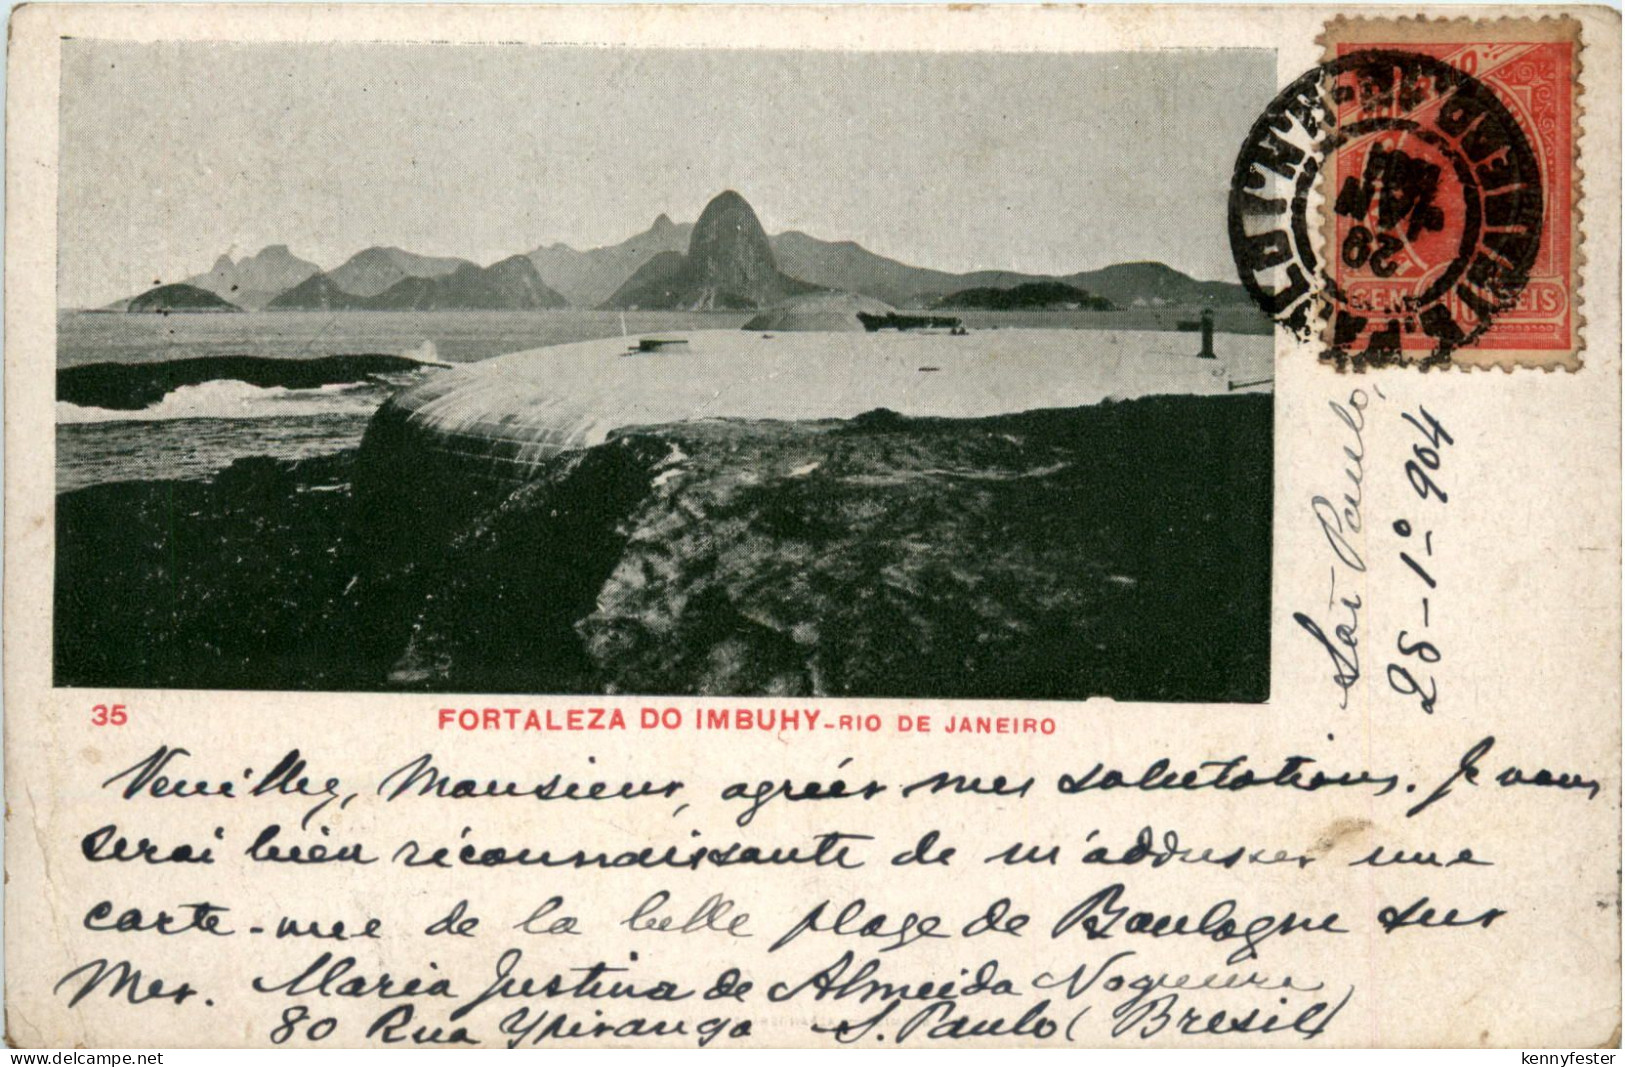 CEM REIS
São Paulo,
28-1º-904
35
FORTALEZA DO IMBUHY-RIO DE JANEIRO
Veuillez, Monsieur, agréer mes salutations. Je vous
serai bien réconnaissante de m'addresser une
carte-vue de la belle plage de Boulogne sur
Mer. Maria Justina de Almeida Nogueira,
80 Rua Ypiranga S. Paulo (Bresil)
kennyfester